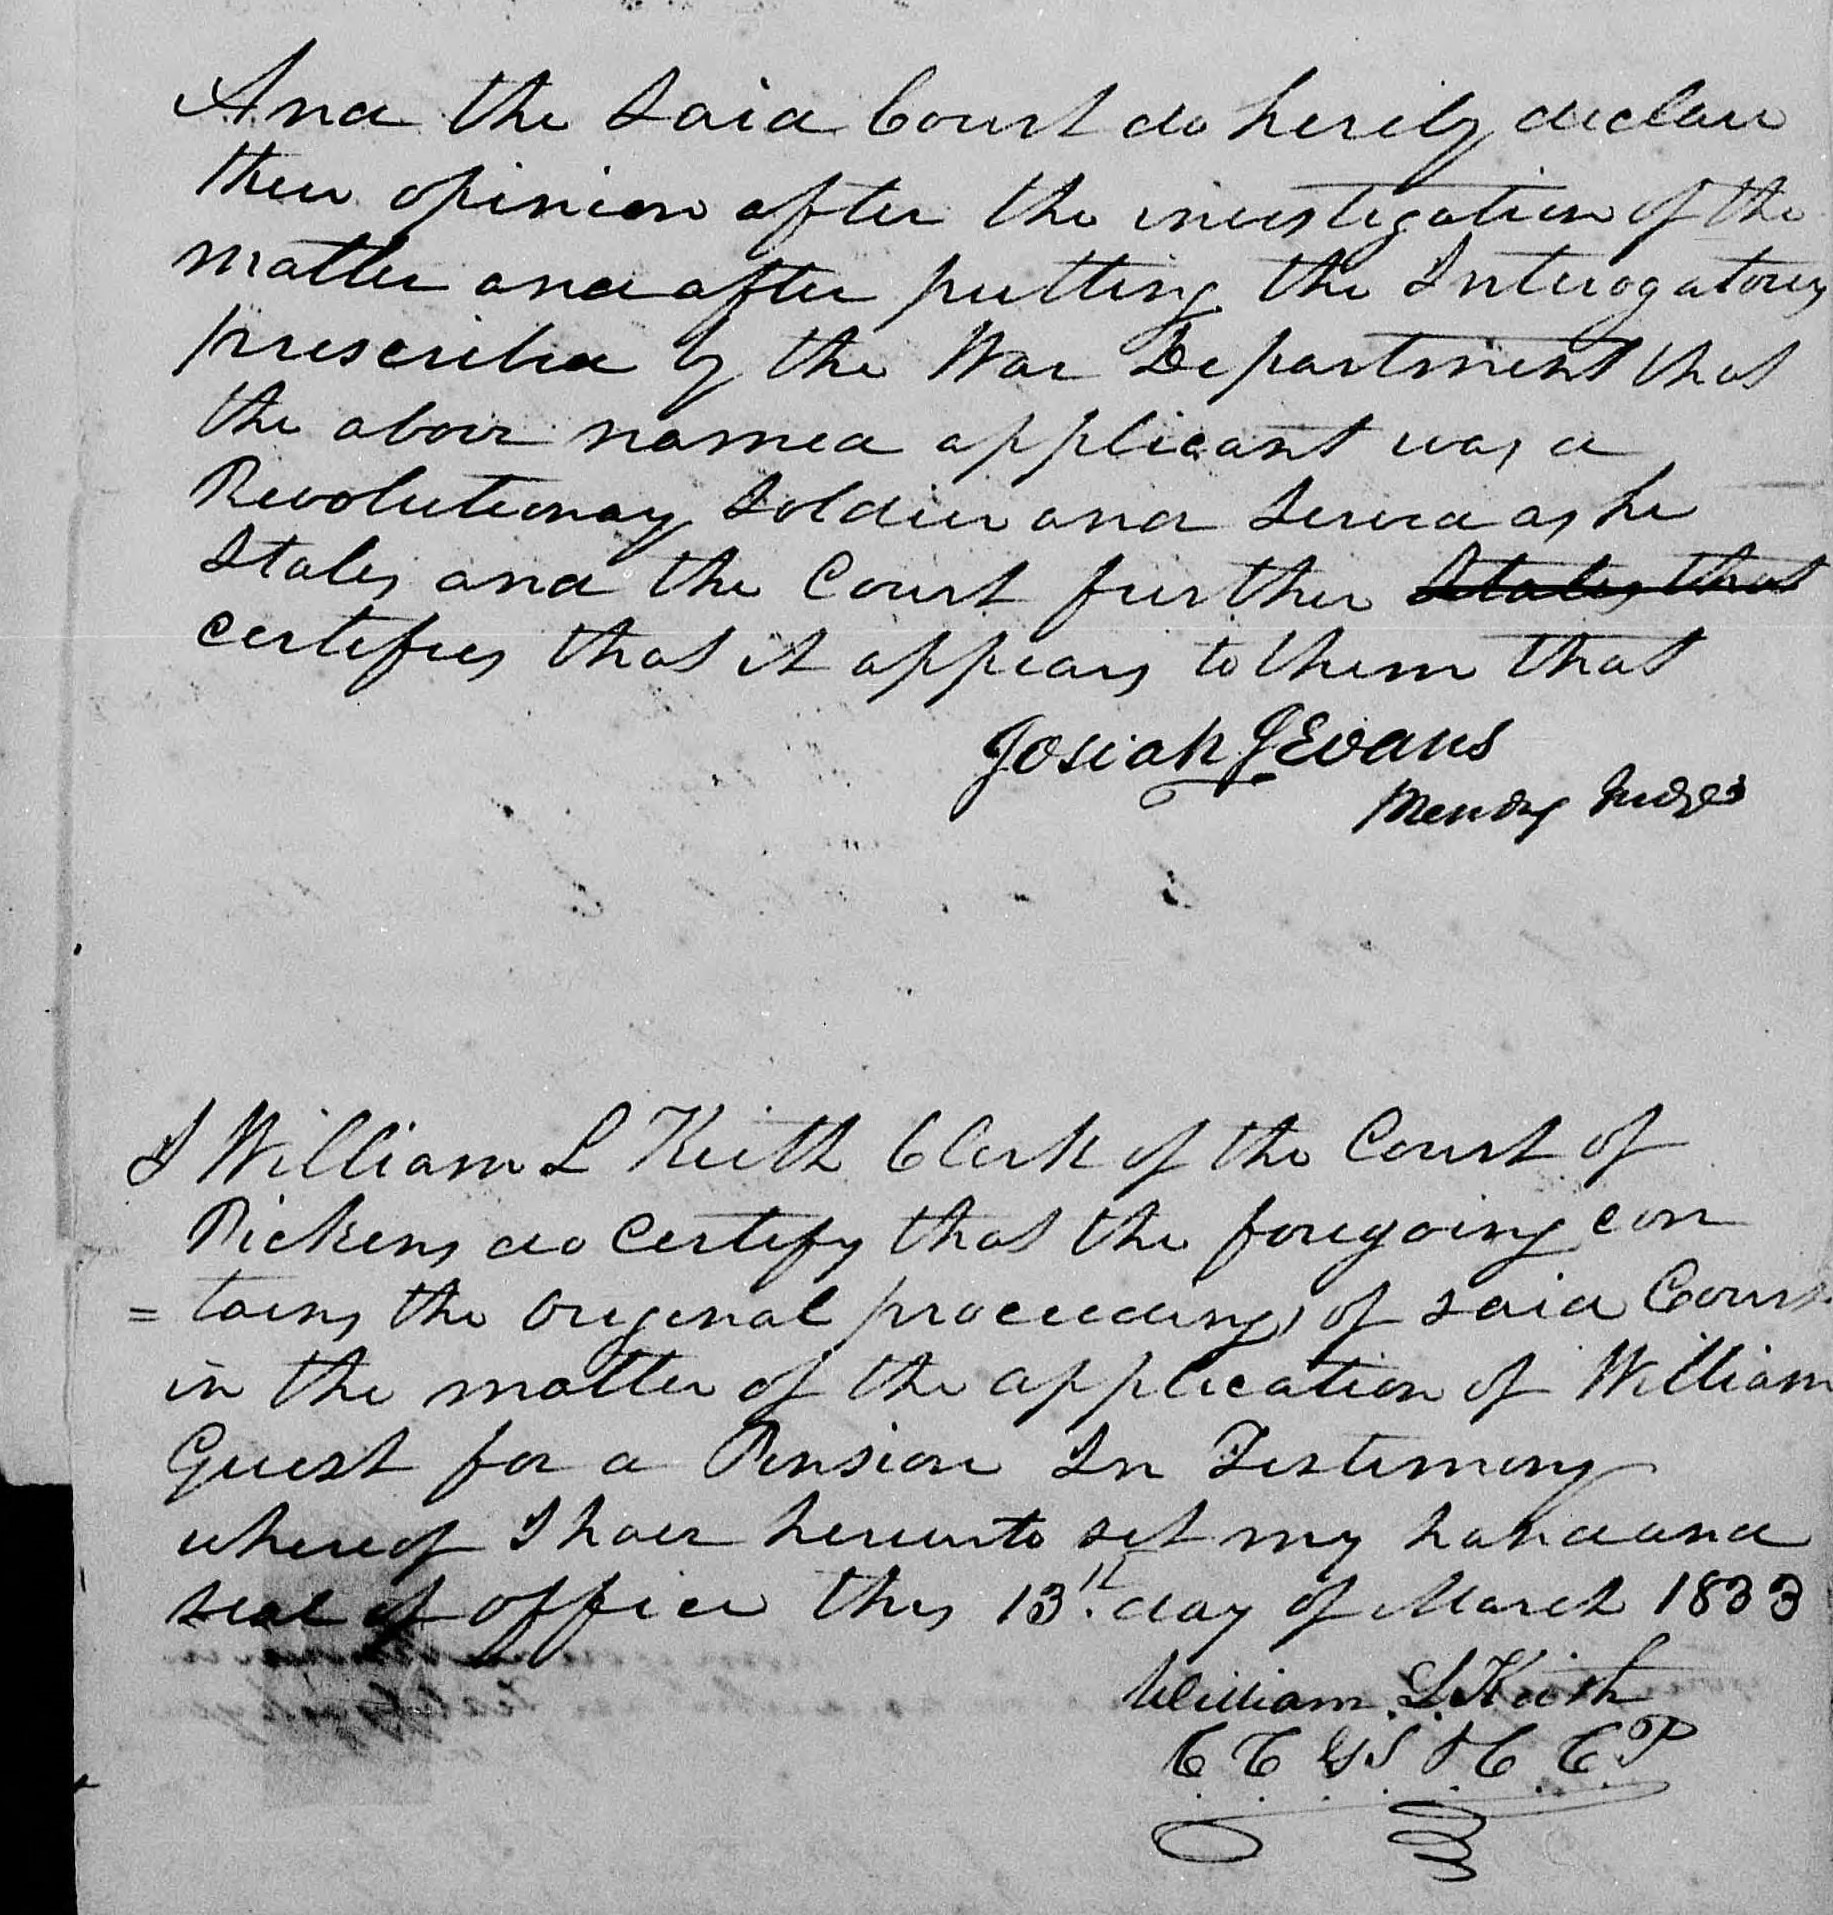 And the Said Court do hereby declare
their opinion after the investigation of the
matter and after putting the Interogatories
prescribed by the War Department that
the above named applicant was a
Revolutionary Soldier and Served as he
States and the Court further States that
certifies that it appears to them that
Josiah J Evans
I William L Keith Clerk of the Court of
Pickens do Certify that the foregoing con
= tains the original proceedings of said Court
in the matter of the application of William
Guest for a Pension In Testimony
whereof I have hereunto set my hand and
seal of office this 13th day of March 1833
William L Keith
C. C. G. S. & C. C. P